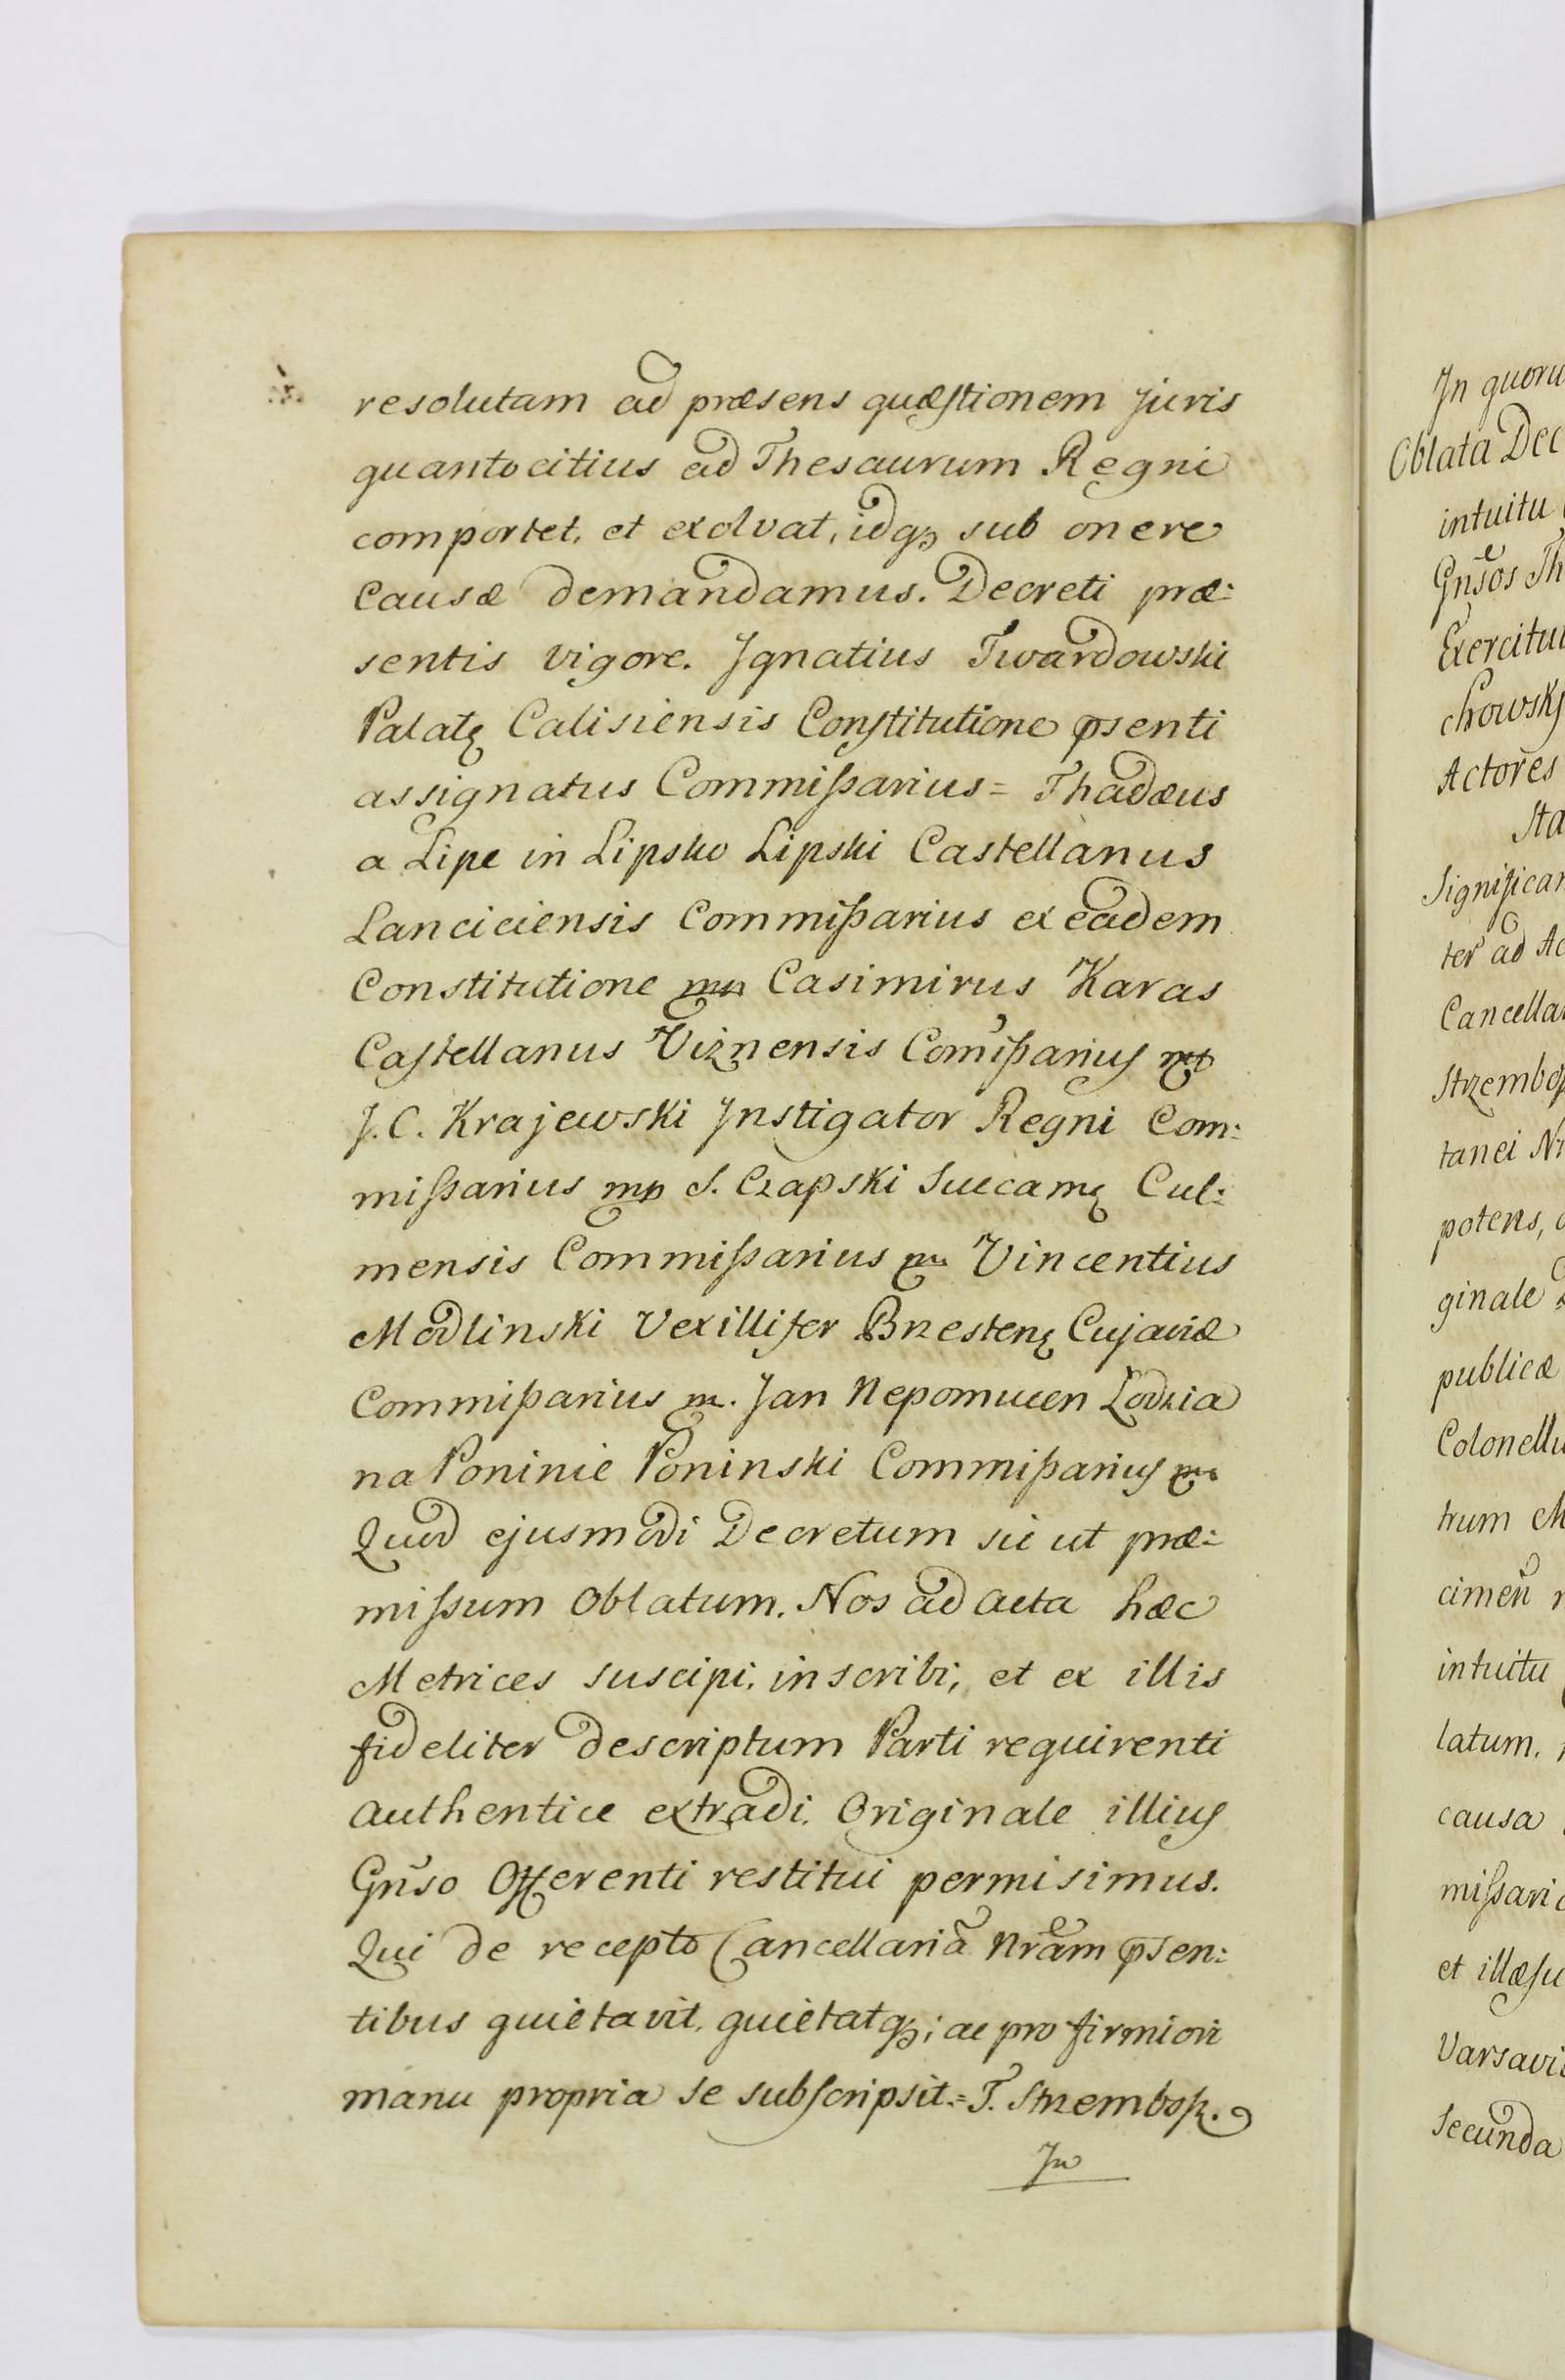 resolutam ad præsens quæstionem juris
quantocitius ad Thesaurum Regni
comportet, et exolvat, idq₃ sub onere
causæ demandamus. Decreti præ:
sentis vigore. Ignatius Twardowski
Palatę Calisiensis Constitutione p̄senti
assignatus Commissarius = Thadæus
a Lipe in Lipsko Lipski Castellanus
Lanciciensis Commissarius ex eadem
Constitutione mp Casimirus Karas
Castellanus Viznensis Com̃issarius mp
J. C. Krajewski Instigator Regni Com:
missarius mp S. Czapski Succamę Cul:
mensis Commissarius mp Vincentius
Modlinski Vexillifer Brzestenę Cujaviæ
Commissarius m. Jan Nepomucen Lodzia
na Poninie Poninski Commissarius mp
Quod ejusmodi Decretum sic ut præ:
missum Oblatum. Nos ad acta hæc
Metrices suscipi, inscribi, et ex illis
fideliter descriptum Parti requirenti
authentice extradi. Originale illius
Gñso Offerenti restitui permisimus.
Qui de recepto Cancellariã Nrãm p̄sen:
tibus quietavit, quietatq₃; ac pro firmiori
manu propria se subscripsit = T. Strzembosz.
In
In quoru
Oblata Dec
intuitu
Gñsos Th
Exercitu
chowsky
Actores
Sta
Significan
ter ad Ac
Cancellar
Strzembos
tanei N
potens,
ginale
publicæ
Colonellu
trum M
cimen
intuitu
latum.
causa
missari
et illæsu
Varsavi
Secunda